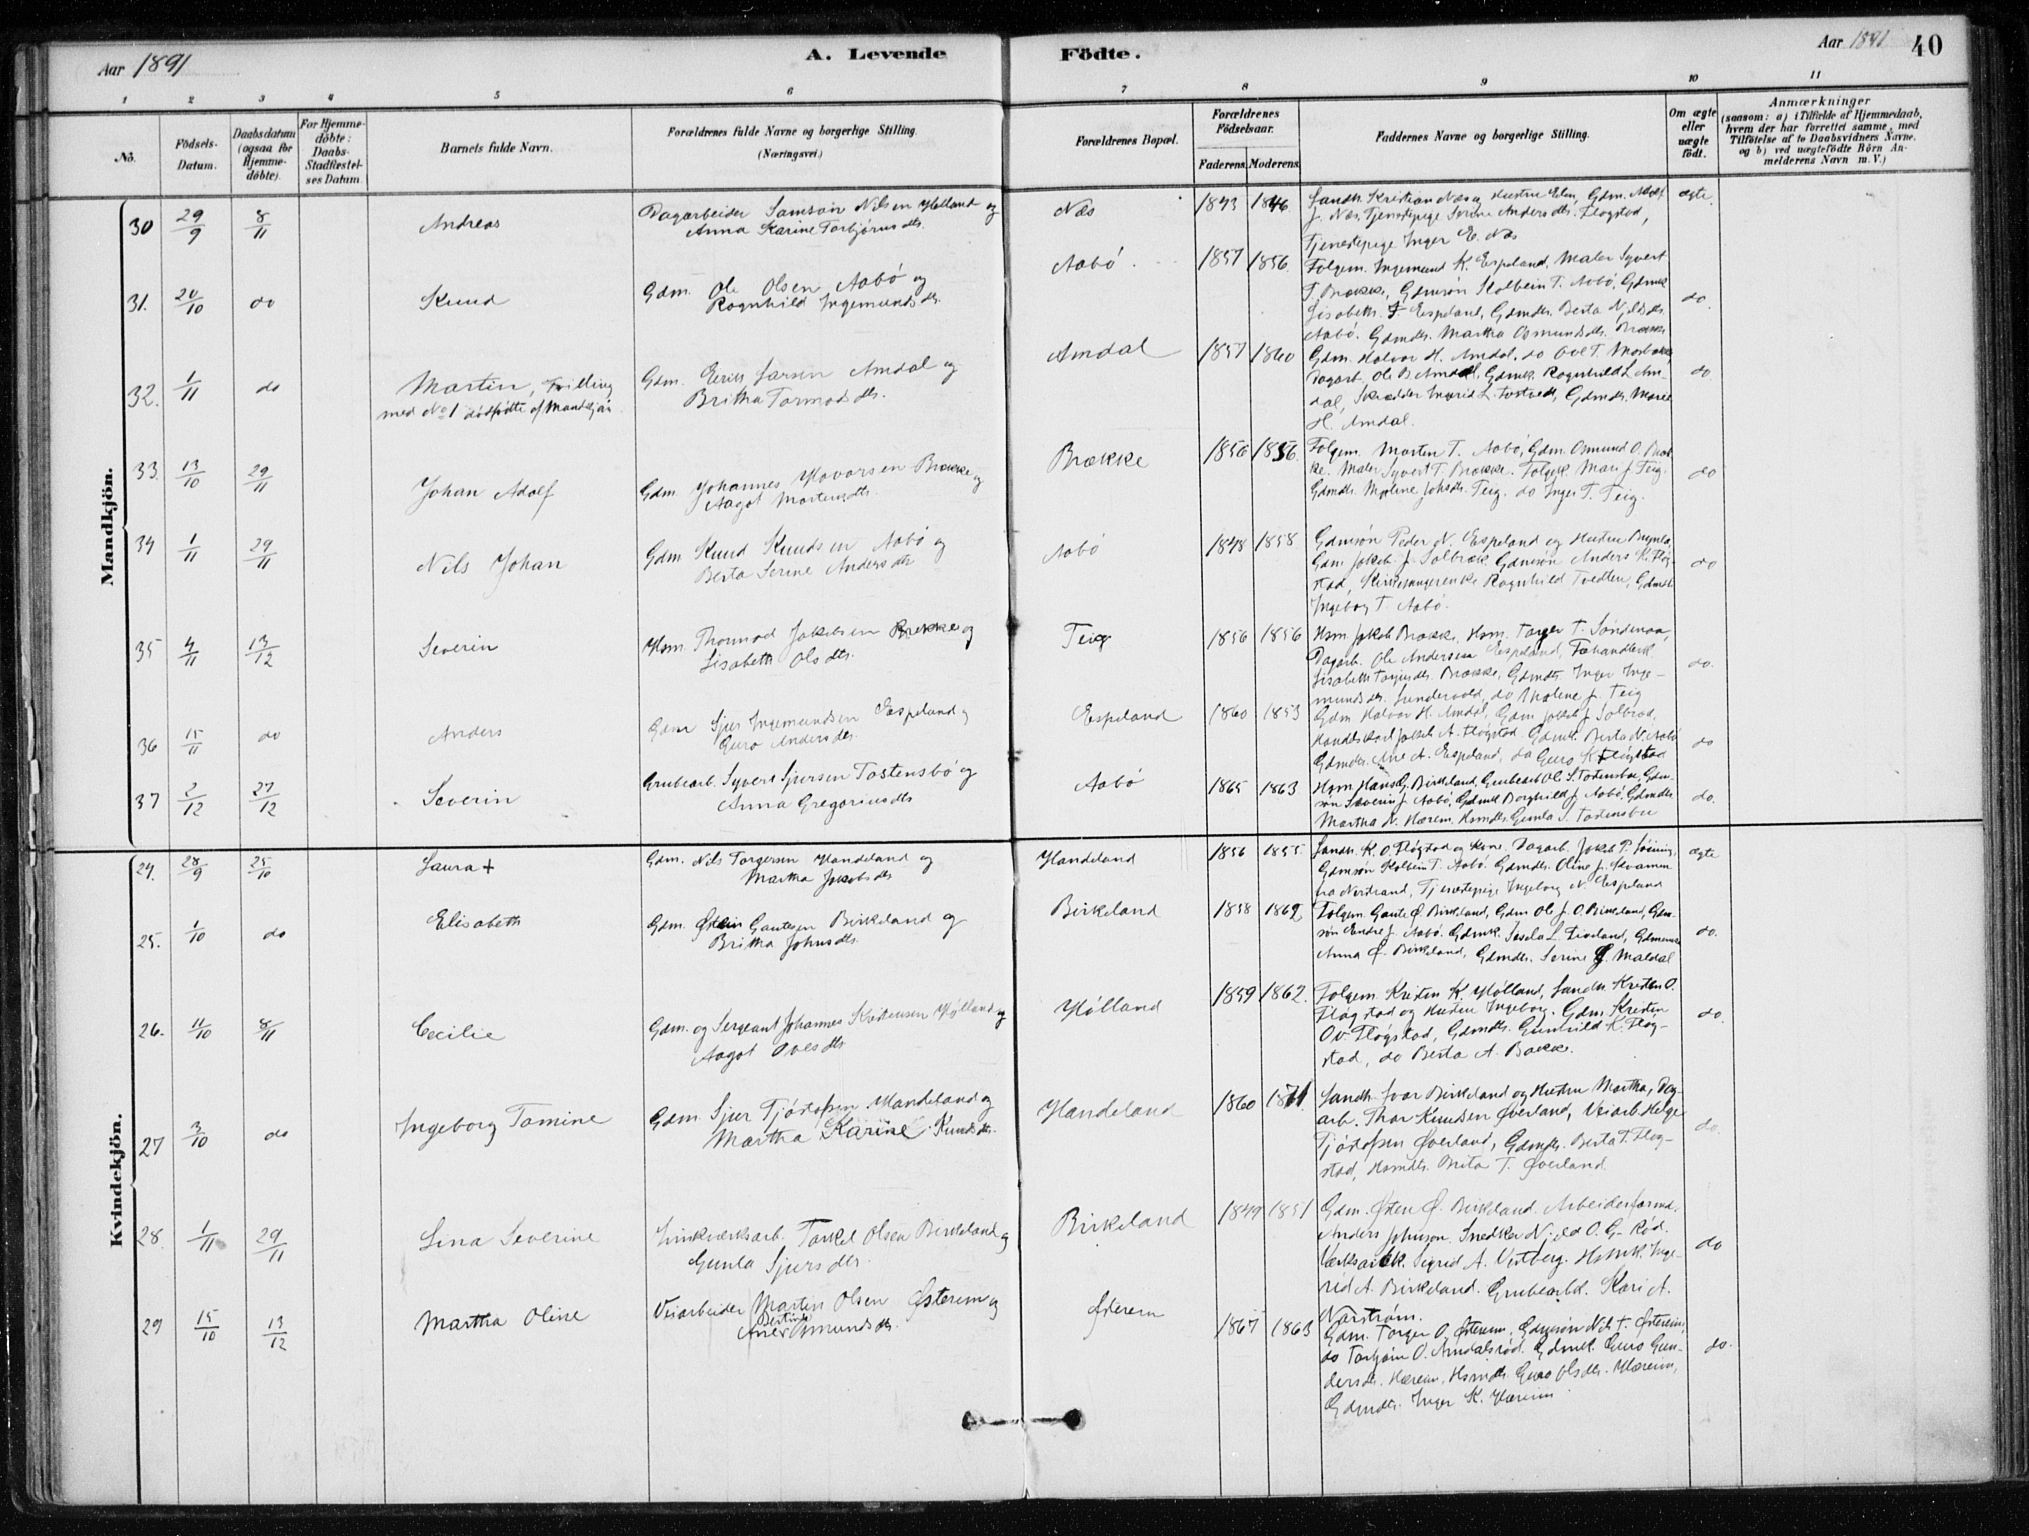 Aar 1891
A. Levende
Födte.
Aar 1891
40
1 2 3 4 5 6 7 8 9 10 11
No.
Födsels-Datum.
Daabsdatum (ogsaa for Hjemme-døbte).
For Hjemme-döbte: Daabs-Stadfæstel-ses Datum.
Barnets fulde Navn.
Forældrenes fulde Navne og borgerlige Stilling.
(Næringsvei.)
Forældrenes Bopæl.
Forældrenes Födselsaar.
Faderens. Moderens.
Faddernes Navne og borgerlige Stilling.
Om ægte eller uægte födt.
Anmærkninger
(saasom: a) i Tilfælde af Hjemmedaab, hvem der har forrettet samme, med Tilföielse af to Daabsvidners Navne, og b) ved uægtefödte Börn An-melderens Navn m. V.)
Mandkjön.
30 29/9 8/11 Andreas
Dagarbeider Samson Nilsen Hølland og
Anna Karine Torbjørnsdtr.
Næs 1843 1846
Landh. Kristian Næs og Hustru Elen, Gdm. Adolf
J. Næs, Tjenestepige Serine Andersdtr. Fløgstad,
Tjenestepige Inger E. Næs
ægte.
31. 20/10 do Knud
Gdm. Ole Olsen Aabø og
Ragnhild Ingemundsdtr.
Aabø 1857 1856
Folgem. Ingemund K. Espeland, Maler Syvert
T. Brække, Gdmsøn Kolbein T. Aabø, Gdmk
Lisabeth T. Espeland, Gdmdtr. Berta Njeldsdtr.
Aabø. Gdmdtr. Martha Osmundsdtr. Brække
do.
32. 1/11 do Martin, Tvilling
med No 1 dødfødte af Mandkjøn.
Gdm. Eerik Larsen Amdal og
Britha Tormodsdtr.
Amdal 1857 1860
Gdm. Halvor H. Amdal, do Ove T.
Dagarb. Ole B. Amdal, Gdmk. Ragnhild L. Am-
dal, Skrædder Ingrid L. Gdmdtr. Marie
H. Amdal.
do.
33. 13/10 29/11 Johan Adolf
Gdm. Johannes Havorsen Brække og
Aagot Mortensdtr.
Brække 1856 1856
Folgem. Morten T. Aabø, Gdm. Osmund O. Bræk-
ke. Maler Syvert T. Brække. Folgek. Mari J. Teig.
Gdmdtr. Malene Johsdtr. Teig. do Inger T. Teig.
do
34 1/11 29/11 Nils Johan
Gdm Knud Knudsen Aabø og
Berta Serine Andersdtr
Aabø 1848 1858
Gdmsøn Peder N. Espeland og Hustru
Gdm. Jakob J. Solbræk. Gdmsøn Anders K. Fløg-
stad, Kirkesangerenke Ragnhild Tvedten, Gdmdtr
Ingeborg T. Aabø.
do
35 4/11 13/12 Severin
Hsm. Thormod Jakobsen Brekke og
Lisabeth Olsdtr.
Teig 1856 1856
Hsm. Jakob Brække, Hsm. Torger T. Søndenaa,
Dagarb. Ole Andersen Espeland,
Lisabeth Brække, Gdmdtr. Inger Inge-
mundsdtr. Sundevold, do Malene J. Teig
do.
36 15/11 do Anders
Gdm Sjur Ingemundsen Espeland og
Guro Andersdtr.
Espeland 1860 1853
Gdm Halvor H. Amdal, Gdm Jakob J. Solbræk,
Handelskarl Jakob A. Fløgstad. Gdmk. Berta N. Aabø
Gdmdtr. Ane A. Espeland, do Guro K. Fløgstad
do
37 2/12 27/12 Severin
Grubearb. Syvert Sjursen Tostensbø og
Anna Gregoriusdtr
Aabø 1865 1863
Hsm. Hans G. Birkeland, Grubearb Ol. S. Tostensbø, Gdm-
søn Severin J. Aabø, Gdmk Borghild J. Aabø, Gdmdtr
Martha N. Hærem. Hsmdtr. Gunla S. Tostensbø
do.
Kvindekjön.
24. 28/9 25/10 Laura +
Gdm. Nils Torgersen Handeland og
Martha Jakobsdtr
Handeland 1856 1855
Landh. K. O. Fløgstad og Kone. Dagarb. Jakob P.
Gdmsøn Kolbein T. Aabø. Gdmdtr. Oline J. Kvamen
fra Nerstrand, Tjenestepige Ingeborg N. Espeland
ægte
25. 1/10 do Elisabeth
Gdm. Østein Gautesen Birkeland og
Britha Johnsdtr.
Birkeland 1858 1862
Folgem. Gaute Ø. Birkeland, Gdm Ole J. O. Birkeland, Gdm-
søn Endre J. Aabø. Gdmk. Sesela L.
Anna Ø. Birkeland, Gdmdtr. Serine Maldal
do.
26. 11/10 8/11 Cecilie
Gdm. og Sergeant Johannes Kristensen Hølland og
Aagot Ovesdtr
Hølland 1859 1862.
Folgem. Kristen K. Hølland, Landh. Kristen O.
Fløgstad og Hustru Ingeborg. Gdm. Kristen
Ov. Fløgstad, Gdmdtr. Gunhild K. Fløg-
stad, do Berta A. Bakke.
do.
27 3/10 do Ingeborg Tomine
Gdm. Sjur Tjøstofsen Handeland og
Martha Karine Knudsdtr.
Handeland 1860 1871
Landh. Ivar Birkeland og Hustru Martha, Dag-
arb. Thor Knudsen Øverland, Veiarb. Helge
Tjøstofsen Øverland, Gdmdtr. Berta T. Fløg-
stad, Hsmdtr. Brita T. Øverland.
do.
28. 1/11 29/11 Lina Severine
Zinkværksarb. Torkel Olsen Birkeland og
Gunla Sjursdtr.
Birkeland 1849 1851
Gdm. Østen Ø. Birkland. Arbeidsformd.
Anders Johnson. Snedker Njeld O. G. Rød.
Værksarbk. Sigrid A. Vestberg. Hsmk. Inge-
rid A. Birkeland. Grubearbk. Kari A.
Närstrøm.
do
29 15/10 13/12 Martha Oline
Veiarbeider Martin Olsen Østerem og
Ane Bertine Omundsdtr.
Østerem 1867 1863
Gdm. Torger O. Østerem, Gdmsøn Nils T. Østerem,
do Torbjørn O. Amdalsrød. Gdmk. Guro Gun-
dersdtr. Hærem, Hsmdtr. Guro Olsdtr. Hærem,
Gdmdtr. Inger K. Hærem.
do.